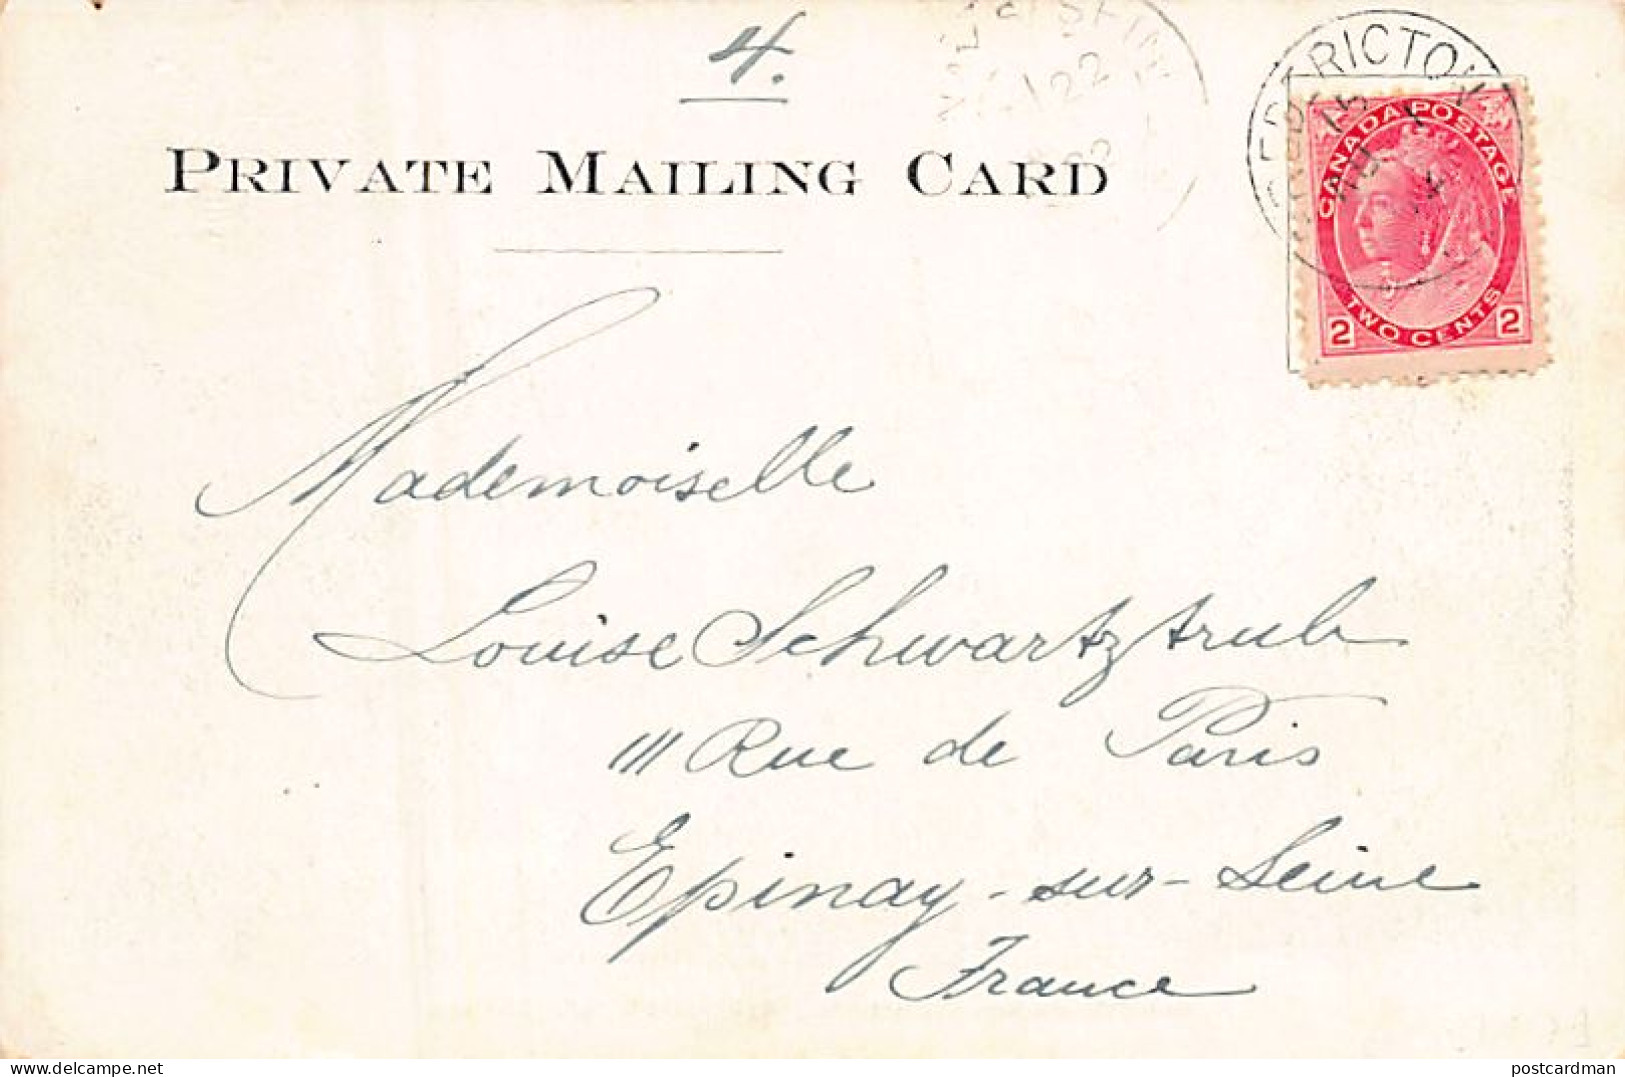 4.
PRIVATE MAILING CARD
CANADA POSTAGE
TWO CENTS
2 2
Mademoiselle
Louise Schwartztrub
111 Rue de Paris
Epinay-sur-Seine
France
delcampe.net
postcardman